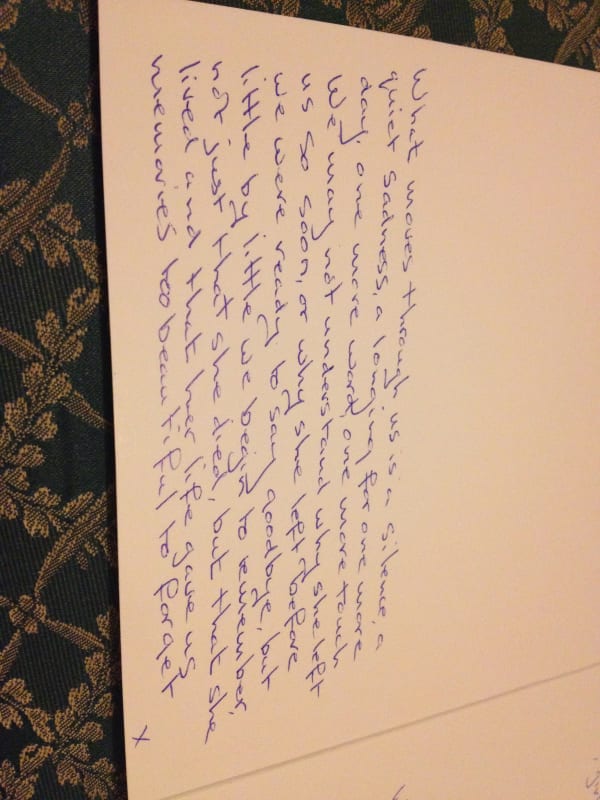 What moves through us is a silence, a
quiet sadness, a longing for one more
day, one more word, one more touch
We may not understand why she left
us so soon, or why she left before
we were ready to say goodbye, but
little by little we begin to remember,
not just that she died, but that she
lived and that her life gave us
memories too beautiful to forget
x